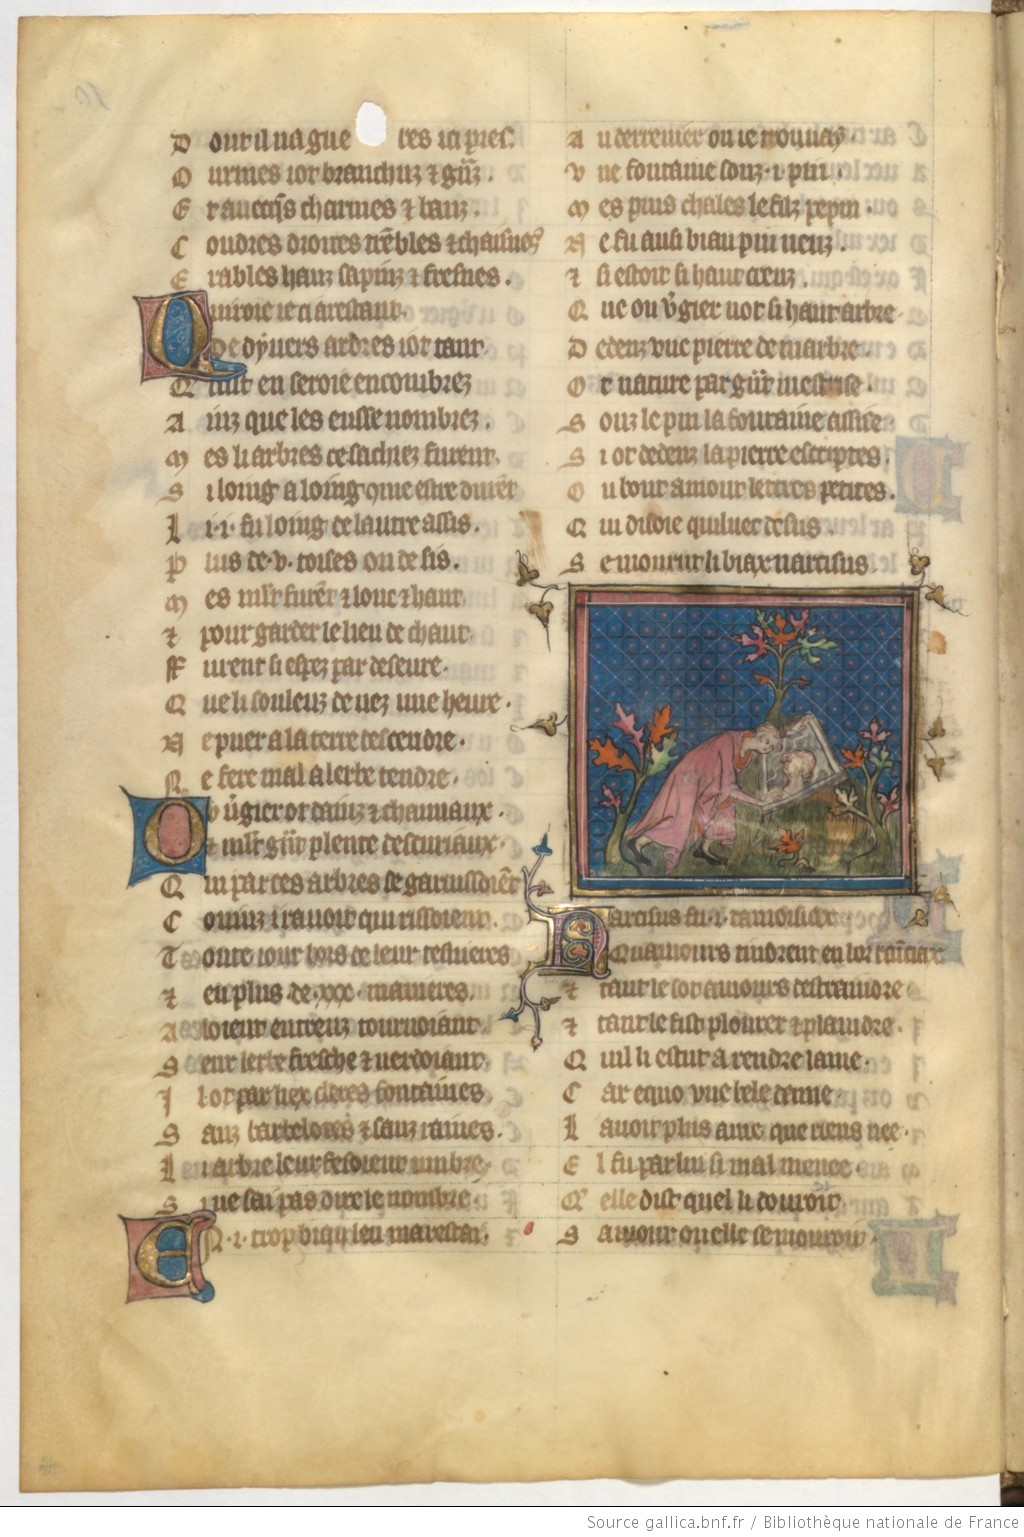 Dont il na gue res ici pres.
Ourmes i ot branchuz ⁊ g̃nz.
Et aueccq̃s charmes ⁊ lanz.
Coudres droites trẽbles ⁊ chaisnes
Erables hauz sapinz ⁊ fresnes.
Quiroie ie ci arestant.
De dyuers arbres i ot tant
Que tuit en seroie encombrez
Ainz que les eusse nombrez.
Mes li arbres ce sachiez furent
Si loing a loing 9me estre durẽt
Li .i. fu loing de lautre assis.
Plus de .v. toises ou de sis.
Mes ml't furẽt ⁊ lonc ⁊ haut
⁊ pour garder le lieu de chaut
Furent si espez par deseure.
Que li souleuz de nez une heure.
Ne puet a la terre descendre.
Ne fere mal a lerbe tendre.
Ou ṽgier ot dainz ⁊ cheuriaux.
⁊ ml't g̃nt plente descuriaux.
Qui par ces arbres se garnissoiẽt
Conninz i rauoit qui issoient.
Toute iour hors de leur tesnieres
⁊ en plus de .xxx. manieres.
Aloient entreuz tournoiant
Seur lerbe fresche ⁊ uerdoiant.
Il ot par liex cleres fontaines.
Sanz barbelotes ⁊ sanz raines.
Li arbre leur fesoient umbre.
Si ne sai pas dire le nombre.
En .i. trop biau leu marestai.
Au derrenier ou ie trouuay.
Vne fontaine souz .i. pin.
Mes puis challes le filz pepin.
Ne fu ausi biau pin ueuz.
⁊ si estoit si haut creuz.
Que ou ṽgier not si haut arbre.
Dedenz vne pierre de marbre.
Ot nature par g̃nt mestrise.
Souz le pin la fontaine assise.
Si ot dedenz la pierre escriptes.
Ou bout amont lettres petites.
Qui disoit qui luec desus.
Se mourut li biax narcisus
Narcisus fu .i. damoisiax
Quamours tindrent en lor raiseax
⁊ tant le sot amours destraindre
⁊ tant le fist plourer ⁊ plaindre.
Quil li estut a rendre lame.
Car equo vne bele dame.
Lauoit plus ame que riens nee.
El fu par lui si mal menee.
Quelle dist quel li donroit
Samour ou elle se mouroit.
Source gallica.bnf.fr / Bibliothèque nationale de France